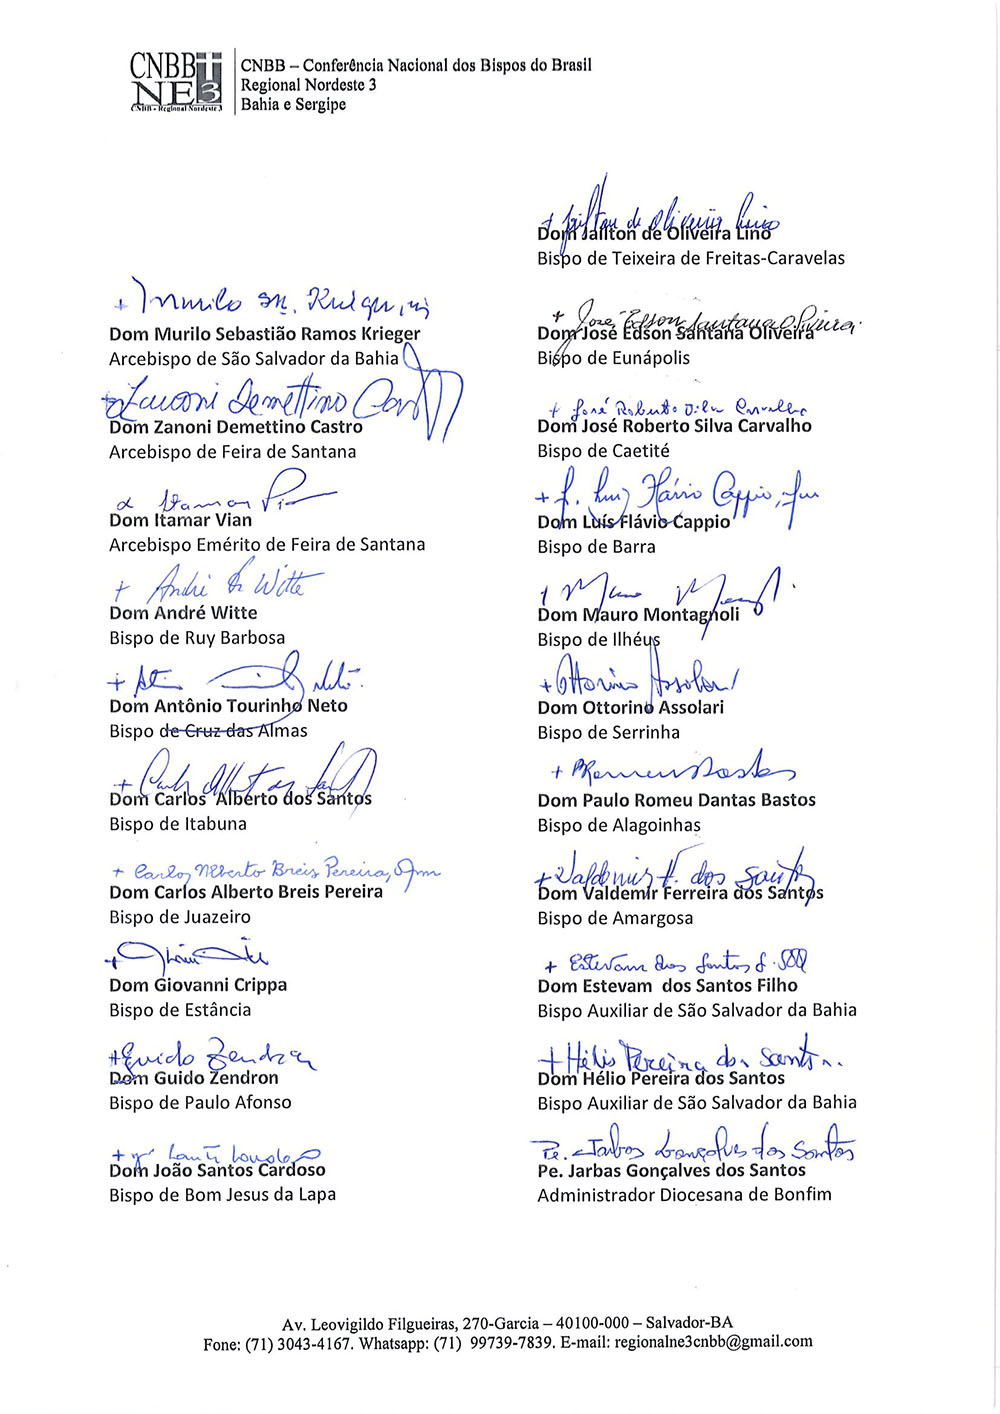 CNBB
NE 3
CNBB - Regional Nordeste 3
CNBB – Conferência Nacional dos Bispos do Brasil
Regional Nordeste 3
Bahia e Sergipe
+ Murilo S. R. Krieger
Dom Murilo Sebastião Ramos Krieger
Arcebispo de São Salvador da Bahia
+ Zanoni Demettino Castro
Dom Zanoni Demettino Castro
Arcebispo de Feira de Santana
+ Itamar Vian
Dom Itamar Vian
Arcebispo Emérito de Feira de Santana
+ André de Witte
Dom André Witte
Bispo de Ruy Barbosa
Neto
Dom Antônio Tourinho Neto
Bispo de Cruz das Almas
+ Carlos Alberto dos Santos
Dom Carlos Alberto dos Santos
Bispo de Itabuna
+ Carlos Alberto Breis Pereira, ofm
Dom Carlos Alberto Breis Pereira
Bispo de Juazeiro
Dom Giovanni Crippa
Bispo de Estância
+ Guido Zendron
Dom Guido Zendron
Bispo de Paulo Afonso
Dom João Santos Cardoso
Bispo de Bom Jesus da Lapa
+ Jailton de Oliveira Lino
Dom Jailton de Oliveira Lino
Bispo de Teixeira de Freitas-Caravelas
+ José Edson Santana Oliveira
Dom José Edson Santana Oliveira
Bispo de Eunápolis
+ José Roberto Silva Carvalho
Dom José Roberto Silva Carvalho
Bispo de Caetité
+ f. Luiz Flávio Cappio, ofm
Dom Luís Flávio Cappio
Bispo de Barra
+ Mauro
Dom Mauro Montagnoli
Bispo de Ilhéus
+ Ottorino Assolari
Dom Ottorino Assolari
Bispo de Serrinha
+ PRomeu Dantas
Dom Paulo Romeu Dantas Bastos
Bispo de Alagoinhas
+ Valdemir F. dos Santos
Dom Valdemir Ferreira dos Santos
Bispo de Amargosa
+ Estevam dos Santos F.
Dom Estevam dos Santos Filho
Bispo Auxiliar de São Salvador da Bahia
+ Hélio Pereira dos Santos.
Dom Hélio Pereira dos Santos
Bispo Auxiliar de São Salvador da Bahia
Pe. Jarbas Gonçalves dos Santos
Pe. Jarbas Gonçalves dos Santos
Administrador Diocesana de Bonfim
Av. Leovigildo Filgueiras, 270-Garcia – 40100-000 – Salvador-BA
Fone: (71) 3043-4167. Whatsapp: (71) 99739-7839. E-mail: regionalne3cnbb@gmail.com